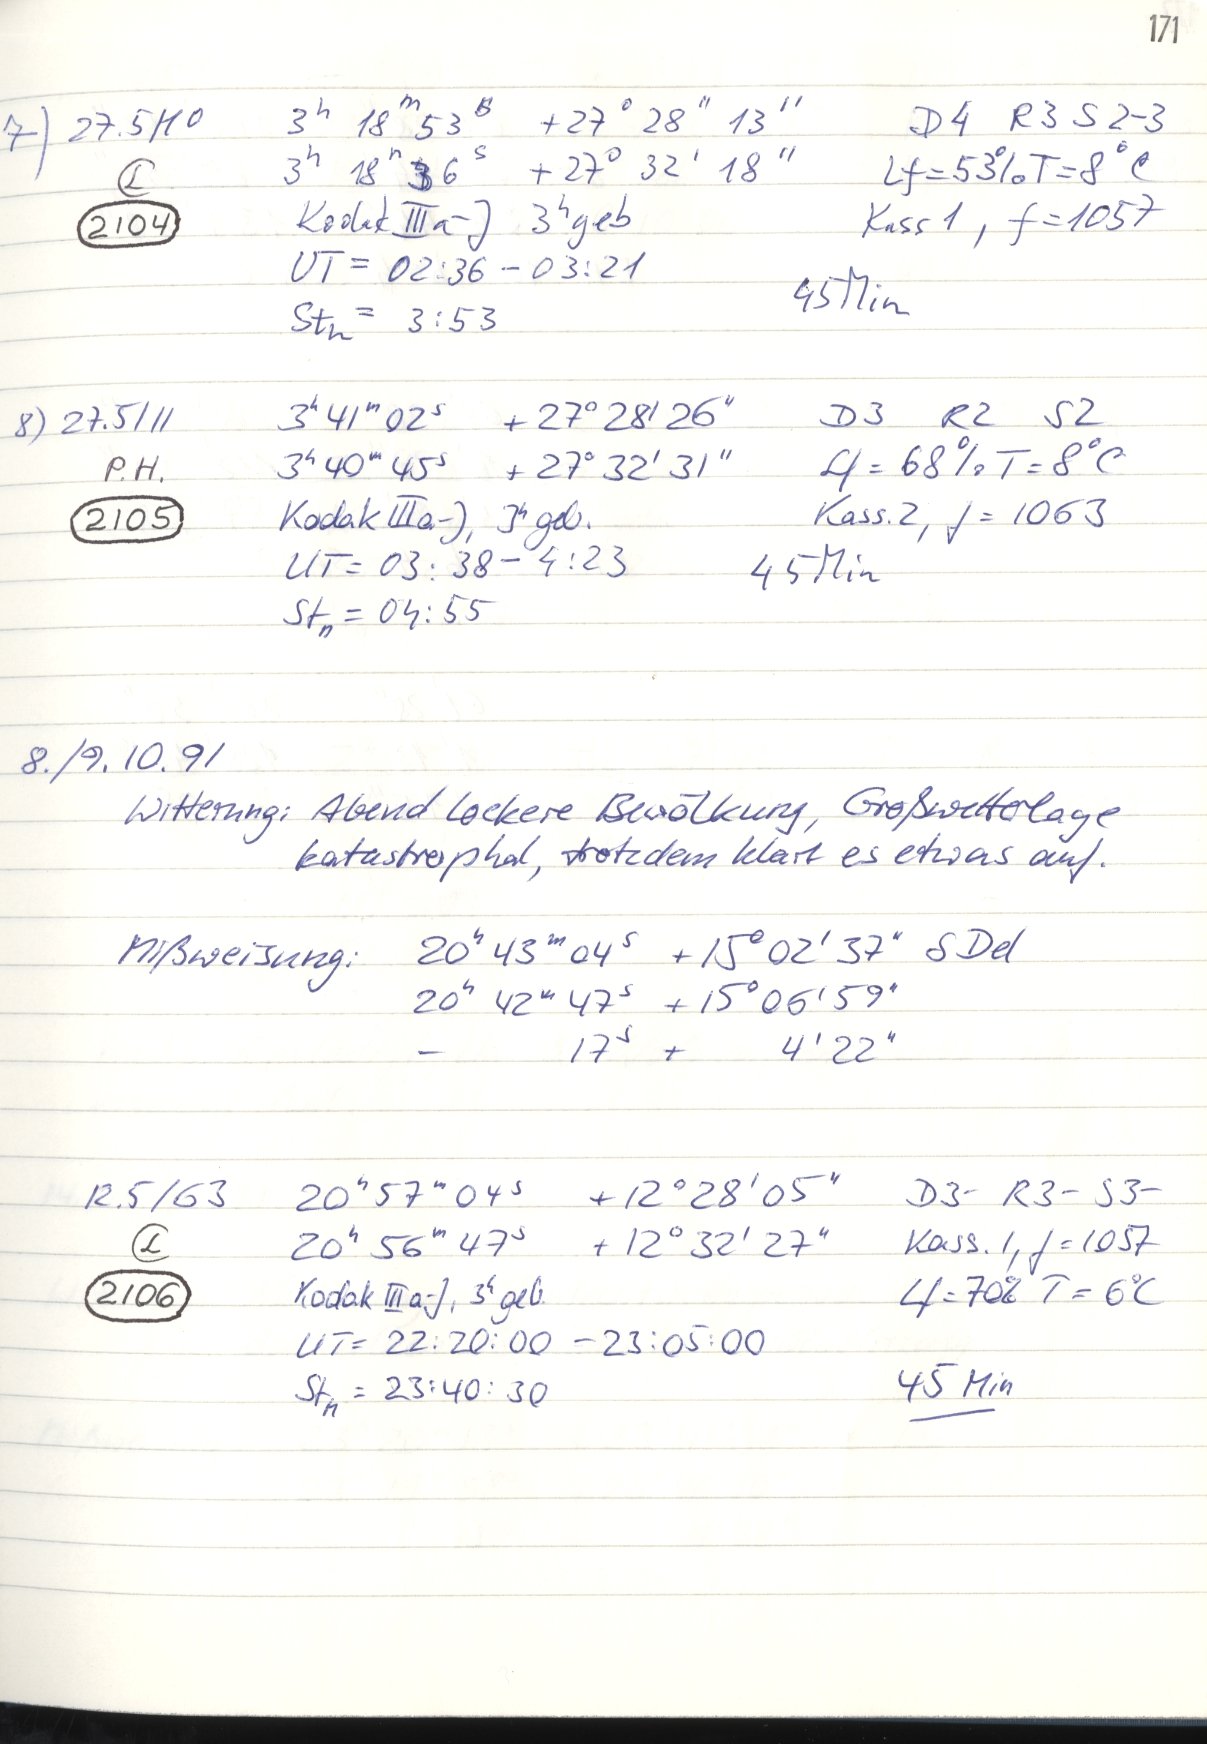 171
7) 27.5/10 3ʰ 18ᵐ 53ˢ +27° 28" 13" D4 R3 S2-3
Ⓛ 3ʰ 18ᵐ 36ˢ +27° 32' 18" Lf=53% T=8°C
2104 Kodak IIIa-J 3ʰ geb Kass 1, f=1057
UT = 02:36 - 03:21 45 Min
Stₙ = 3:53
8) 27.5/11 3ʰ 41ᵐ 02ˢ +27° 28' 26" D3 R2 S2
P.H. 3ʰ 40ᵐ 45ˢ +27° 32' 31" Lf = 68% T=8°C
2105 Kodak IIIa-J, 3ʰ geb. Kass. 2, f = 1063
UT = 03:38 - 4:23 45 Min
Stₙ = 04:55
8./9. 10. 91
Witterung: Abend lockere Bewölkung, Großwetterlage
katastrophal, trotzdem klart es etwas auf.
Mißweisung: 20ʰ 43ᵐ 04ˢ +15° 02' 37" δ Del
20ʰ 42ᵐ 47ˢ +15° 06' 59"
- 17ˢ + 4' 22"
R.5/63 20ʰ 57ᵐ 04ˢ +12° 28' 05" D3- R3- S3-
Ⓛ 20ʰ 56ᵐ 47ˢ +12° 32' 27" Kass. 1, f=1057
2106 Kodak IIIa-J, 3ʰ geb. Lf=70% T=6°C
UT = 22:20:00 - 23:05:00
Stₙ = 23:40:30 45 Min